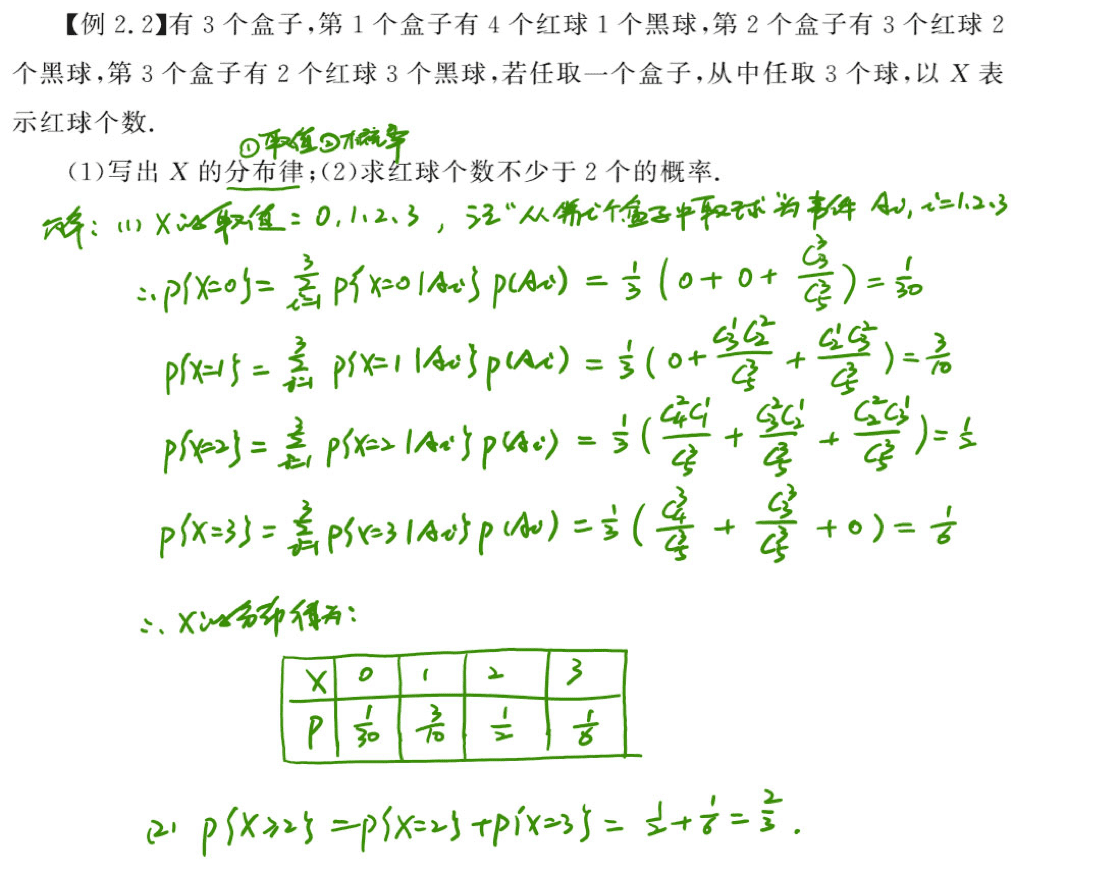 【例 2.2】有 3 个盒子,第 1 个盒子有 4 个红球 1 个黑球,第 2 个盒子有 3 个红球 2
个黑球,第 3 个盒子有 2 个红球 3 个黑球,若任取一个盒子,从中任取 3 个球,以 X 表
示红球个数.
①取值②概率
(1)写出 X 的分布律;(2)求红球个数不少于 2 个的概率.
解: (1) X的取值=0,1,2,3, 记"从第i个盒子中取球"为事件 Ai, i=1.2.3
∴P{X=0}=∑_{i=1}^{3} P{X=0|Ai}P(Ai) = 1/3 (0+0+C_3^3/C_5^3) = 1/30
P{X=1} = ∑_{i=1}^{3} P{X=1|Ai}P(Ai) = 1/3 (0+C_3^1C_2^2/C_5^3 + C_2^1C_3^2/C_5^3) = 3/10
P{X=2} = ∑_{i=1}^{3} P{X=2|Ai}P(Ai) = 1/3 (C_4^2C_1^1/C_5^3 + C_3^2C_2^1/C_5^3 + C_2^2C_3^1/C_5^3) = 1/2
P{X=3} = ∑_{i=1}^{3} P{X=3|Ai}P(Ai) = 1/3 (C_4^3/C_5^3 + C_3^3/C_5^3 + 0) = 1/6
∴ X的分布律为:
X 0 1 2 3
P 1/30 3/10 1/2 1/6
(2) P{X≥2} = P{X=2}+P{X=3} = 1/2+1/6=2/3.